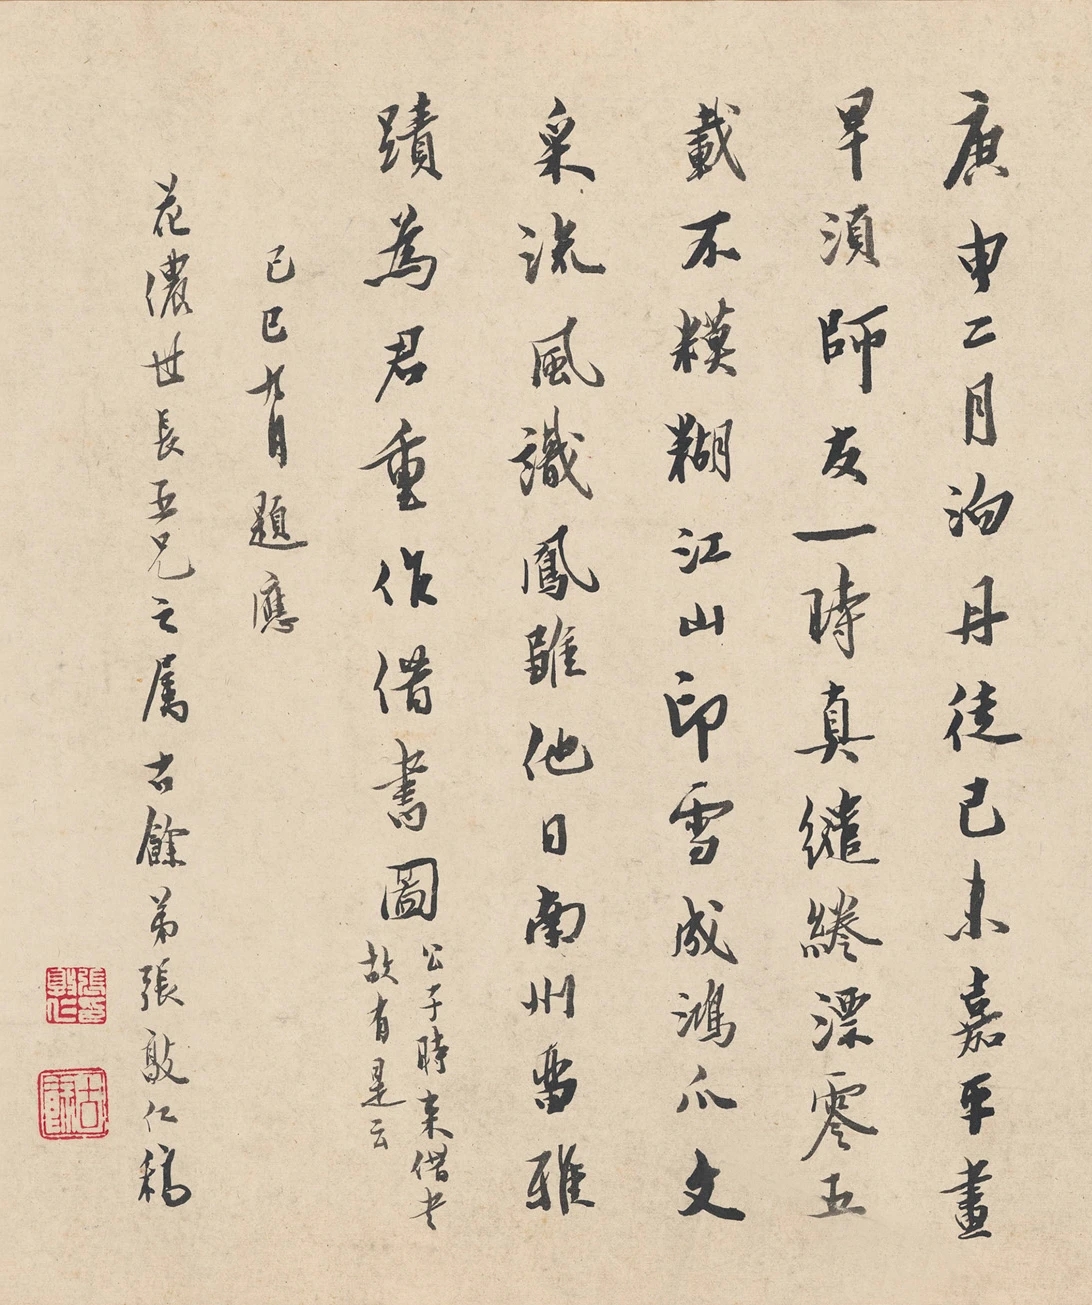 庚申二月泊丹徒己未嘉平畫
早須師友一時真繾綣漂零五
載不糢糊江山印雪成鴻爪文
采流風識鳳雛他日南州留雅
蹟為君重作借書圖
公子時來借書
故有是云
己巳九月題應
花儂世長五兄之属古餘弟張敦仁稿
張印敦仁
古餘